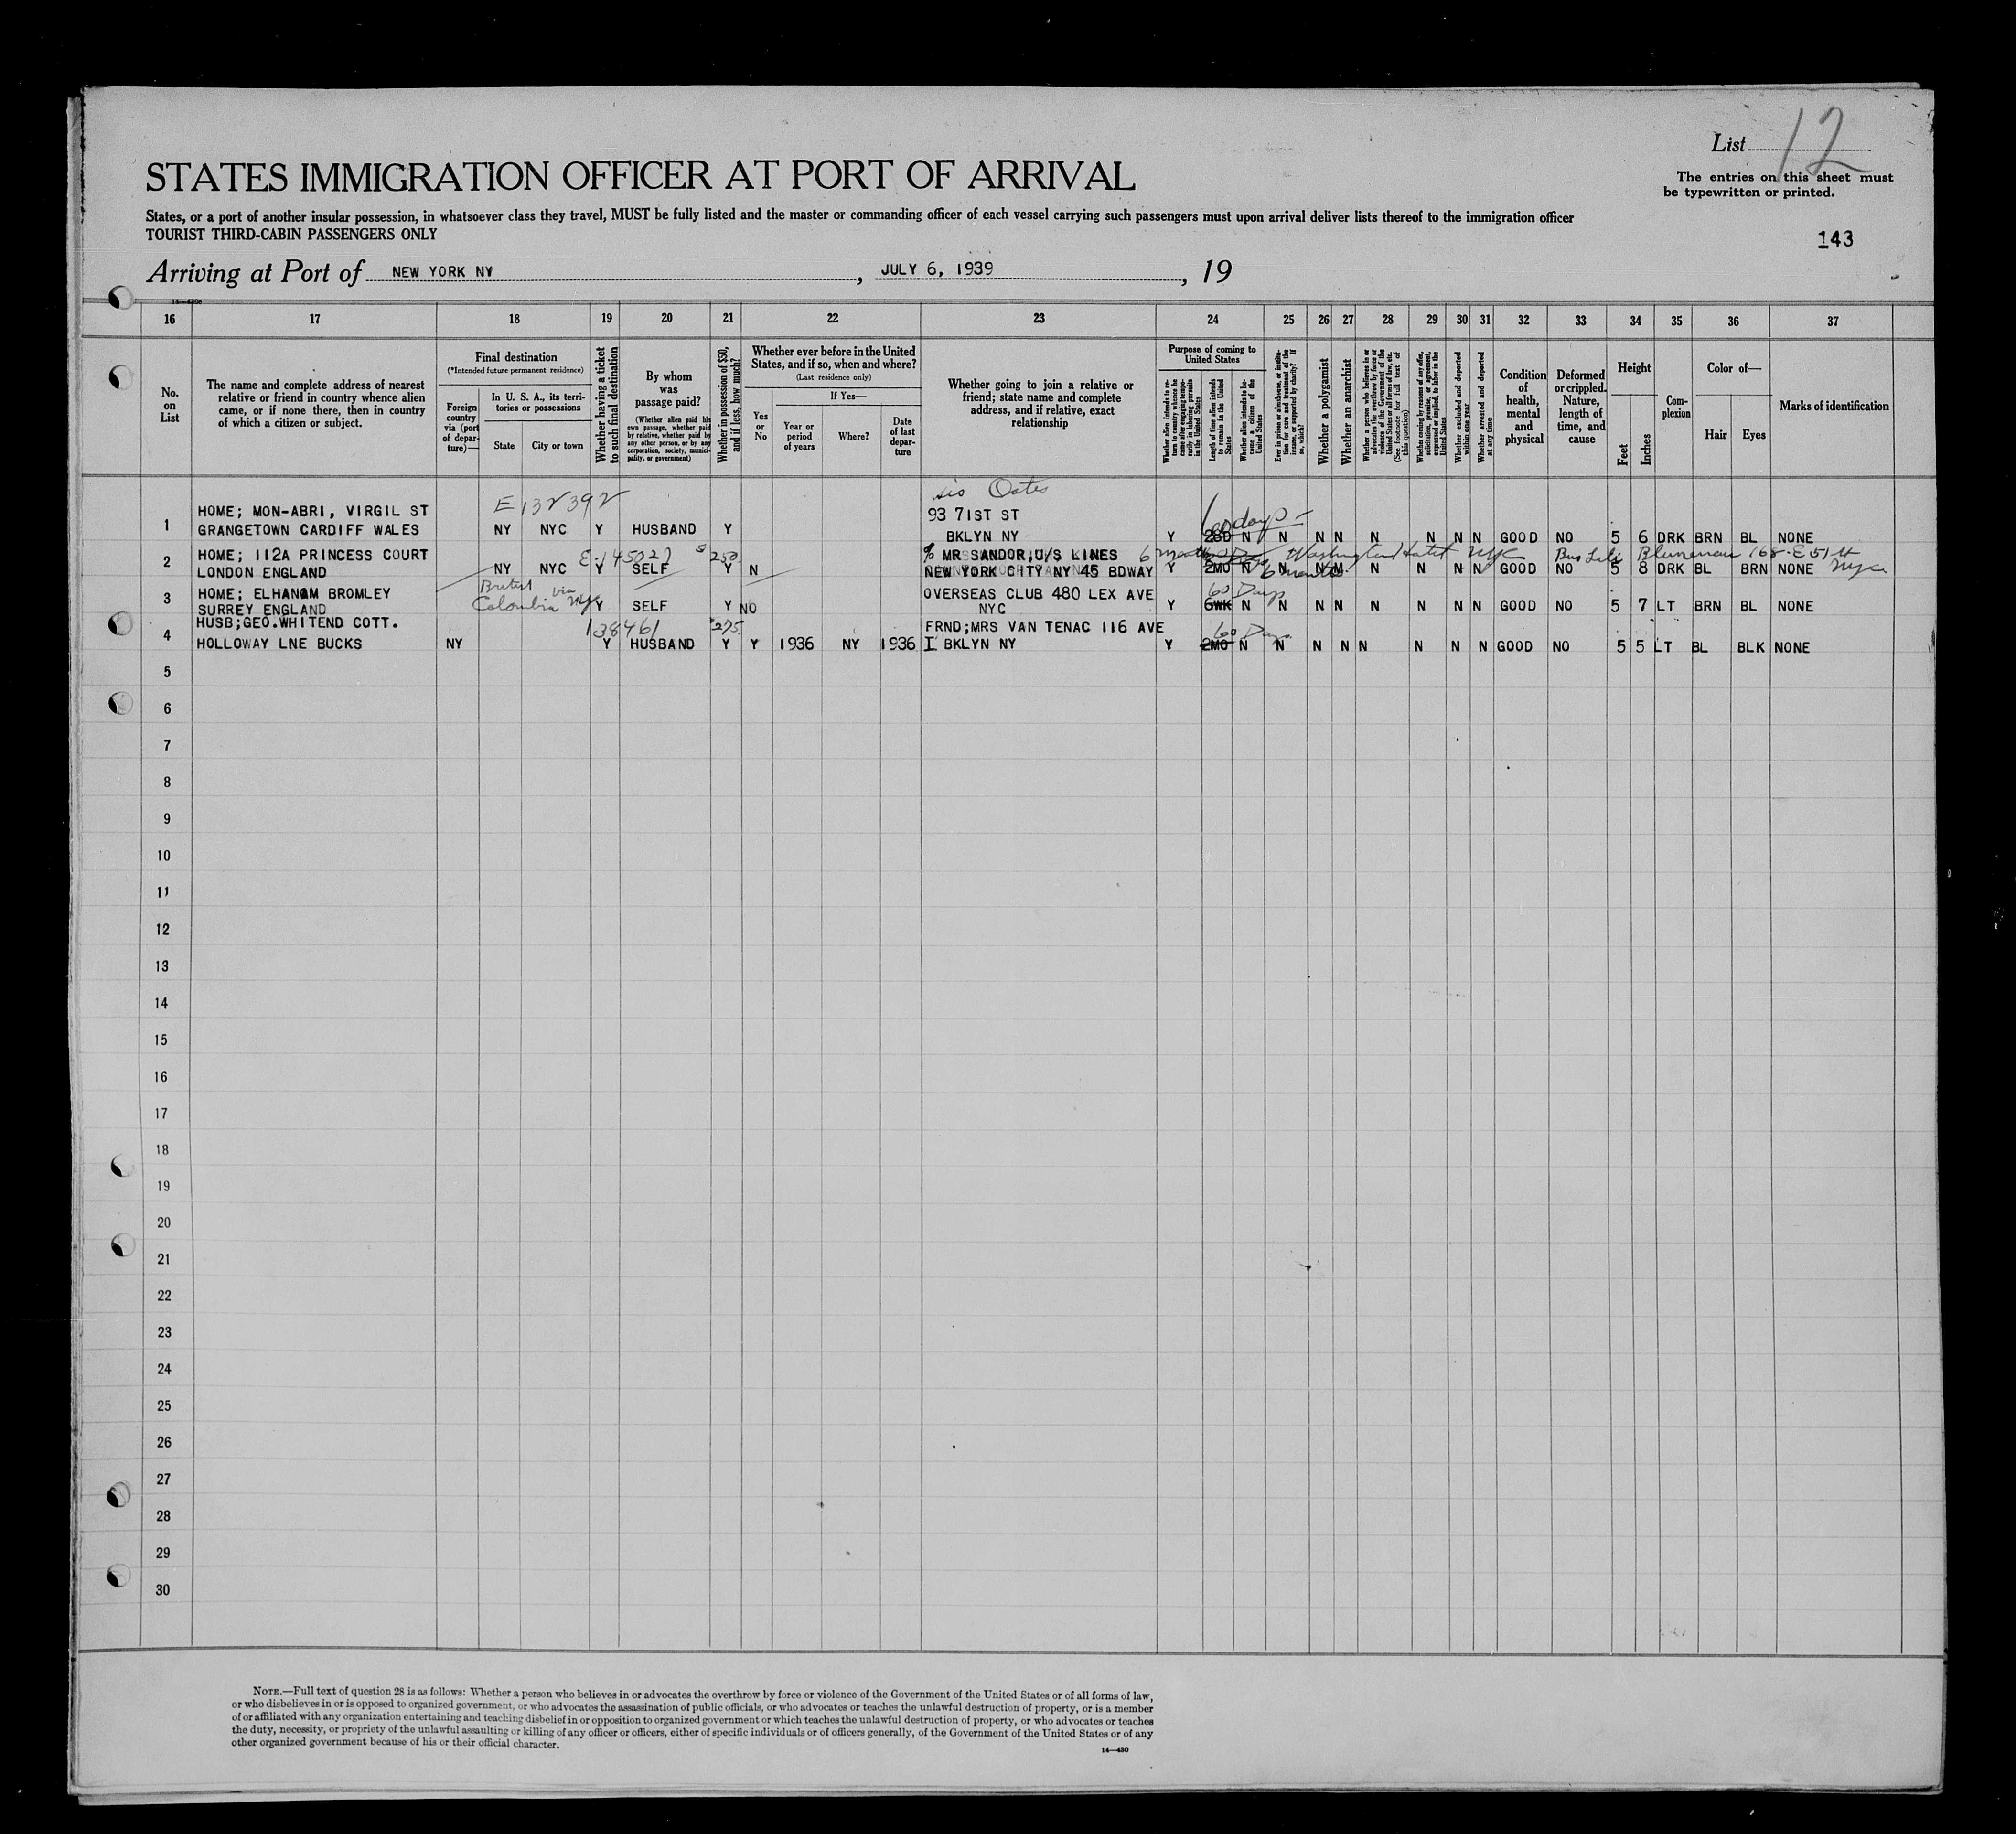 List 12
STATES IMMIGRATION OFFICER AT PORT OF ARRIVAL
The entries on this sheet must
be typewritten or printed.
States, or a port of another insular possession, in whatsoever class they travel, MUST be fully listed and the master or commanding officer of each vessel carrying such passengers must upon arrival deliver lists thereof to the immigration officer
TOURIST THIRD-CABIN PASSENGERS ONLY
143
Arriving at Port of NEW YORK NY, JULY 6, 1939, 19
16 17 18 19 20 21 22 23 24 25 26 27 28 29 30 31 32 33 34 35 36 37
No. on List
The name and complete address of nearest relative or friend in country whence alien came, or if none there, then in country of which a citizen or subject.
Final destination
(*Intended future permanent residence)
Foreign country via (port of departure)—
In U. S. A., its territories or possessions
State
City or town
Whether having a ticket to such final destination
By whom was passage paid?
(Whether alien paid his own passage, whether paid by relative, whether paid by any other person, or by any corporation, society, municipality, or government)
Whether in possession of $50, and if less, how much?
Whether ever before in the United States, and if so, when and where?
(Last residence only)
Yes or No
If Yes—
Year or period of years
Where?
Date of last departure
Whether going to join a relative or friend; state name and complete address, and if relative, exact relationship
Purpose of coming to United States
Whether alien intends to return to country whence he came after engaging temporarily in laboring pursuits in the United States
Length of time alien intends to remain in the United States
Whether alien intends to become a citizen of the United States
Ever in prison or almshouse, or institution for care and treatment of the insane, or supported by charity? If so, which?
Whether a polygamist
Whether an anarchist
Whether a person who believes in or advocates the overthrow by force or violence of the Government of the United States or of all forms of law, etc. (See footnote for full text of this question)
Whether coming by reasons of any offer, solicitation, promise, or agreement, expressed or implied, to labor in the United States
Whether excluded and deported within one year
Whether arrested and deported at any time
Condition of health, mental and physical
Deformed or crippled. Nature, length of time, and cause
Height
Feet
Inches
Complexion
Color of—
Hair
Eyes
Marks of identification
E 132392
sis Oates
60 days
HOME; MON-ABRI, VIRGIL ST 93 71ST ST
1 GRANGETOWN CARDIFF WALES NY NYC Y HUSBAND Y BKLYN NY Y 28D N N N N N N N N GOOD NO 5 6 DRK BRN BL NONE
HOME; 112A PRINCESS COURT E-145027 $250 % MR SANDOR, U/S LINES 6 months Washington NYC Blumenau 168 E 51 St
2 LONDON ENGLAND NY NYC Y SELF Y N NEW YORK CITY NY 45 BDWAY Y 2MO N N N N N N N N GOOD NO 5 8 DRK BL BRN NONE NYC
6 months
British via
HOME; ELHANAM BROMLEY Colombia NY OVERSEAS CLUB 480 LEX AVE 60 Days
3 SURREY ENGLAND Y SELF Y NO NYC Y 6WK N N N N N N N N GOOD NO 5 7 LT BRN BL NONE
HUSB;GEO.WHITEND COTT. 138461 $275 FRND;MRS VAN TENAC 116 AVE 60 Days
4 HOLLOWAY LNE BUCKS NY Y HUSBAND Y Y 1936 NY 1936 I BKLYN NY Y 2MO N N N N N N N N GOOD NO 5 5 LT BL BLK NONE
5
6
7
8
9
10
11
12
13
14
15
16
17
18
19
20
21
22
23
24
25
26
27
28
29
30
NOTE.—Full text of question 28 is as follows: Whether a person who believes in or advocates the overthrow by force or violence of the Government of the United States or of all forms of law,
or who disbelieves in or is opposed to organized government, or who advocates the assassination of public officials, or who advocates or teaches the unlawful destruction of property, or is a member
of or affiliated with any organization entertaining and teaching disbelief in or opposition to organized government or which teaches the unlawful destruction of property, or who advocates or teaches
the duty, necessity, or propriety of the unlawful assaulting or killing of any officer or officers, either of specific individuals or of officers generally, of the Government of the United States or of any
other organized government because of his or their official character.
14—430